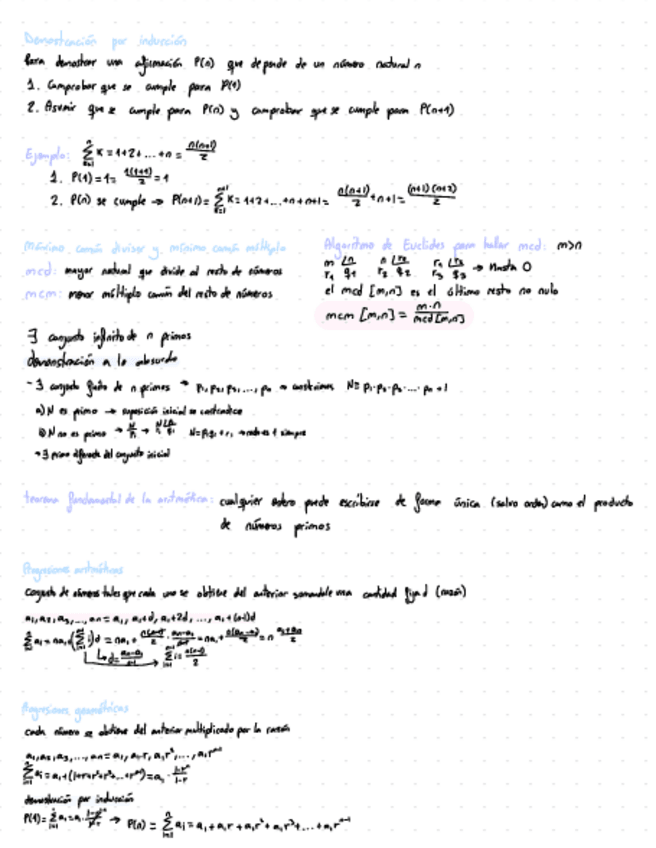 Demostración por inducción
Para demostrar una afirmación P(n) que depende de un número natural n
1. Comprobar que se cumple para P(1)
2. Asumir que se cumple para P(n) y comprobar que se cumple para P(n+1)
Ejemplo: ∑ K = 1+2+...+n = n(n+1)/2
1. P(1) = 1 = 1(1+1)/2 = 1
2. P(n) se cumple → P(n+1) = ∑ K = 1+2+...+n+n+1 = n(n+1)/2 + n+1 = (n+1)(n+2)/2
Máximo común divisor y mínimo común múltiplo
mcd: mayor natural que divide al resto de números
mcm: menor múltiplo común del resto de números
Algoritmo de Euclides para hallar mcd: m>n
→ Hasta 0
el mcd [m,n] es el último resto no nulo
mcm [m,n] = m·n/mcd[m,n]
∃ conjunto infinito de n primos
demostración a lo absurdo
- ∃ conjunto finito de n primes → p₁, p₂, p₃, ..., pₙ → construimos N =
a) N es primo → suposición inicial se contradice
b) N no es primo →
→ ∃ primo diferente del conjunto inicial
teorema fundamental de la aritmética: cualquier entero puede escribirse de forma única (salvo orden) como el producto
de números primos
Progresiones aritméticas
conjunto de números tales que cada uno se obtiene del anterior sumandole una cantidad fija d (razón)
a₁, a₂, a₃, ..., aₙ = a₁, a₁+d, a₁+2d, ..., a₁+(n-1)d
Progresiones geométricas
cada número se obtiene del anterior multiplicado por la razón
a₁, a₂, a₃, ..., aₙ = a₁, a₁r, a₁r², ..., a₁rⁿ⁻¹
demostración por inducción
P(n) = ∑ aᵢ = a₁+a₁r+a₁r²+a₁r³+...+a₁rⁿ⁻¹